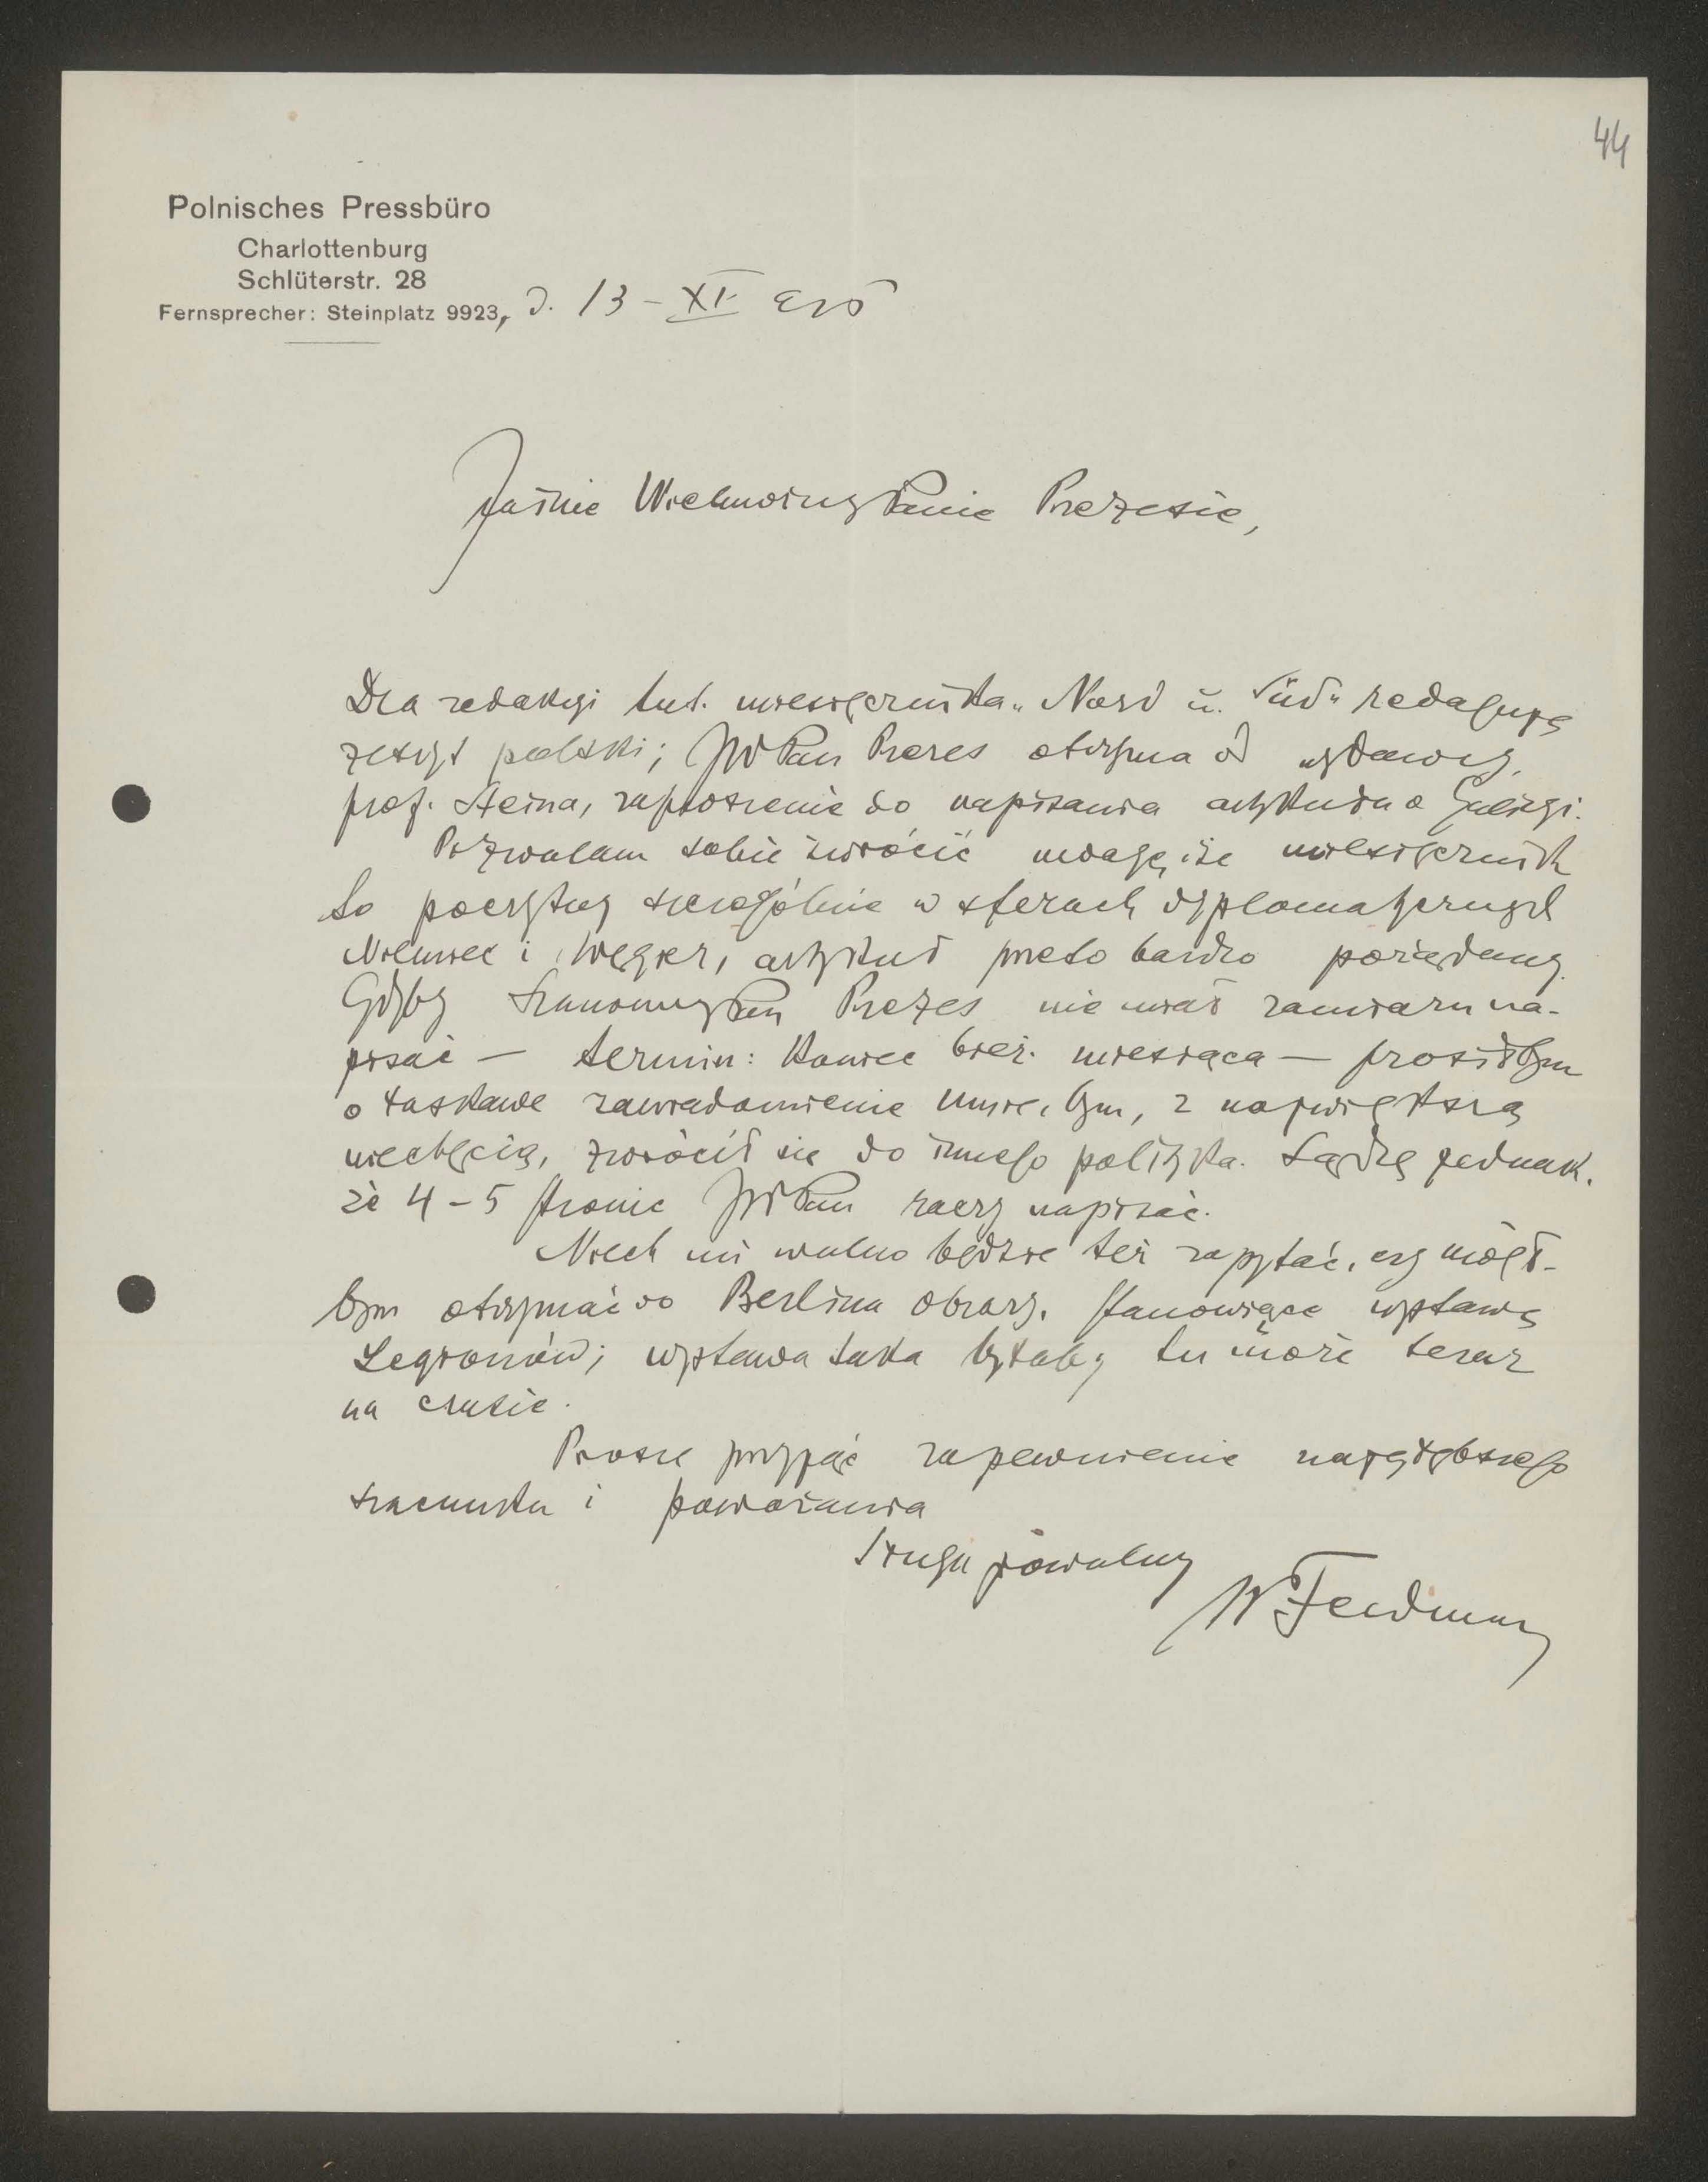 44
Polnisches Pressbüro
Charlottenburg
Schlüterstr. 28
Fernsprecher: Steinplatz 9923, d. 13 - XI 915
Jaśnie Wielmożny Panie Prezesie,
Dla redakcyi tut. miesięcznika „Nord u. Süd" redaguję
zeszyt polski; JWPan Prezes otrzyma od wydawcy,
prof. Steina, zaproszenie do napisania artykułu o Galicyi.
Pozwalam sobie zwrócić uwagę, iże miesięcznik
to poczytny szczególnie w sferach dyplomatycznych
Niemiec i Węgier, artykuł przeto bardzo pożądany.
Gdyby Szanowny Pan Prezes nie miał zamiaru na-
pisać — termin: koniec bież. miesiąca — prosiłbym
o łaskawe zawiadomienie mnie, bym, z największą
niechęcią, zwrócił się do innego polityka. Sądzę jednak,
że 4 - 5 stronic JWPan raczy napisać.
Niech mi wolno będzie też zapytać, czy mógł-
bym otrzymać do Berlina obrazy, stanowiące wystawę
Legionów; wystawa taka byłaby tu może teraz
na czasie.
Proszę przyjąć zapewnienie najgłębszego
szacunku i poważania
Sługa powolny
WFeldman